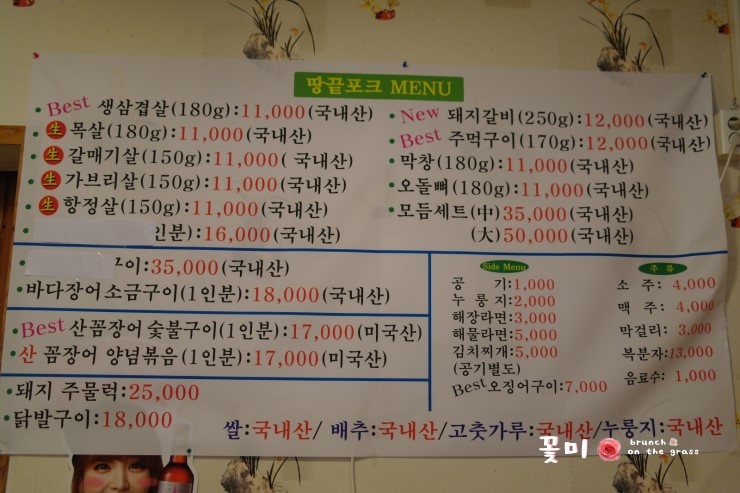 땅끝포크 MENU
Best 생삼겹살(180g):11,000(국내산)
生 목살(180g):11,000(국내산)
生 갈매기살(150g):11,000( 국내산)
生 가브리살(150g):11,000(국내산)
生 항정살(150g):11,000(국내산)
인분):16,000(국내산)
New 돼지갈비(250g):12,000(국내산)
Best 주먹구이(170g):12,000(국내산)
막창(180g):11,000(국내산)
오돌뼈(180g):11,000(국내산)
모듬세트(中)35,000(국내산)
(大)50,000(국내산)
이:35,000(국내산)
바다장어소금구이(1인분):18,000(국내산)
Best 산꼼장어 숯불구이(1인분):17,000(미국산)
산 꼼장어 양념볶음(1인분):17,000(미국산)
돼지 주물럭:25,000
닭발구이:18,000
Side Menu
공 기:1,000
누 룽 지:2,000
해장라면:3,000
해물라면:5,000
김치찌개:5,000
(공기별도)
Best오징어구이:7,000
주 류
소 주: 4,000
맥 주: 4,000
막걸리: 3,000
복분자:13,000
음료수: 1,000
쌀:국내산/ 배추:국내산/고춧가루:국내산/누룽지:국내산
꽃미 brunch on the grass